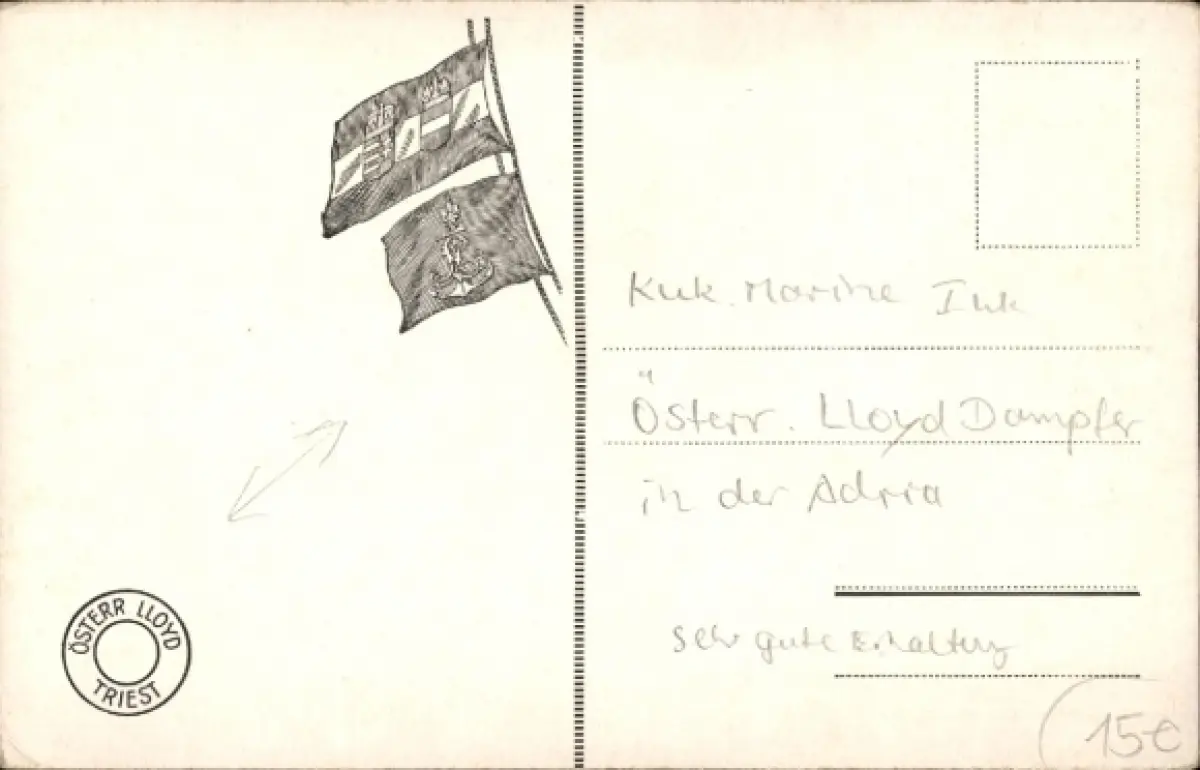 Kuk. Marine Ink
Österr. Lloyd Dampfer
in der Adria
Sehr gute Erhaltung
15€
ÖSTERR LLOYD
TRIEST